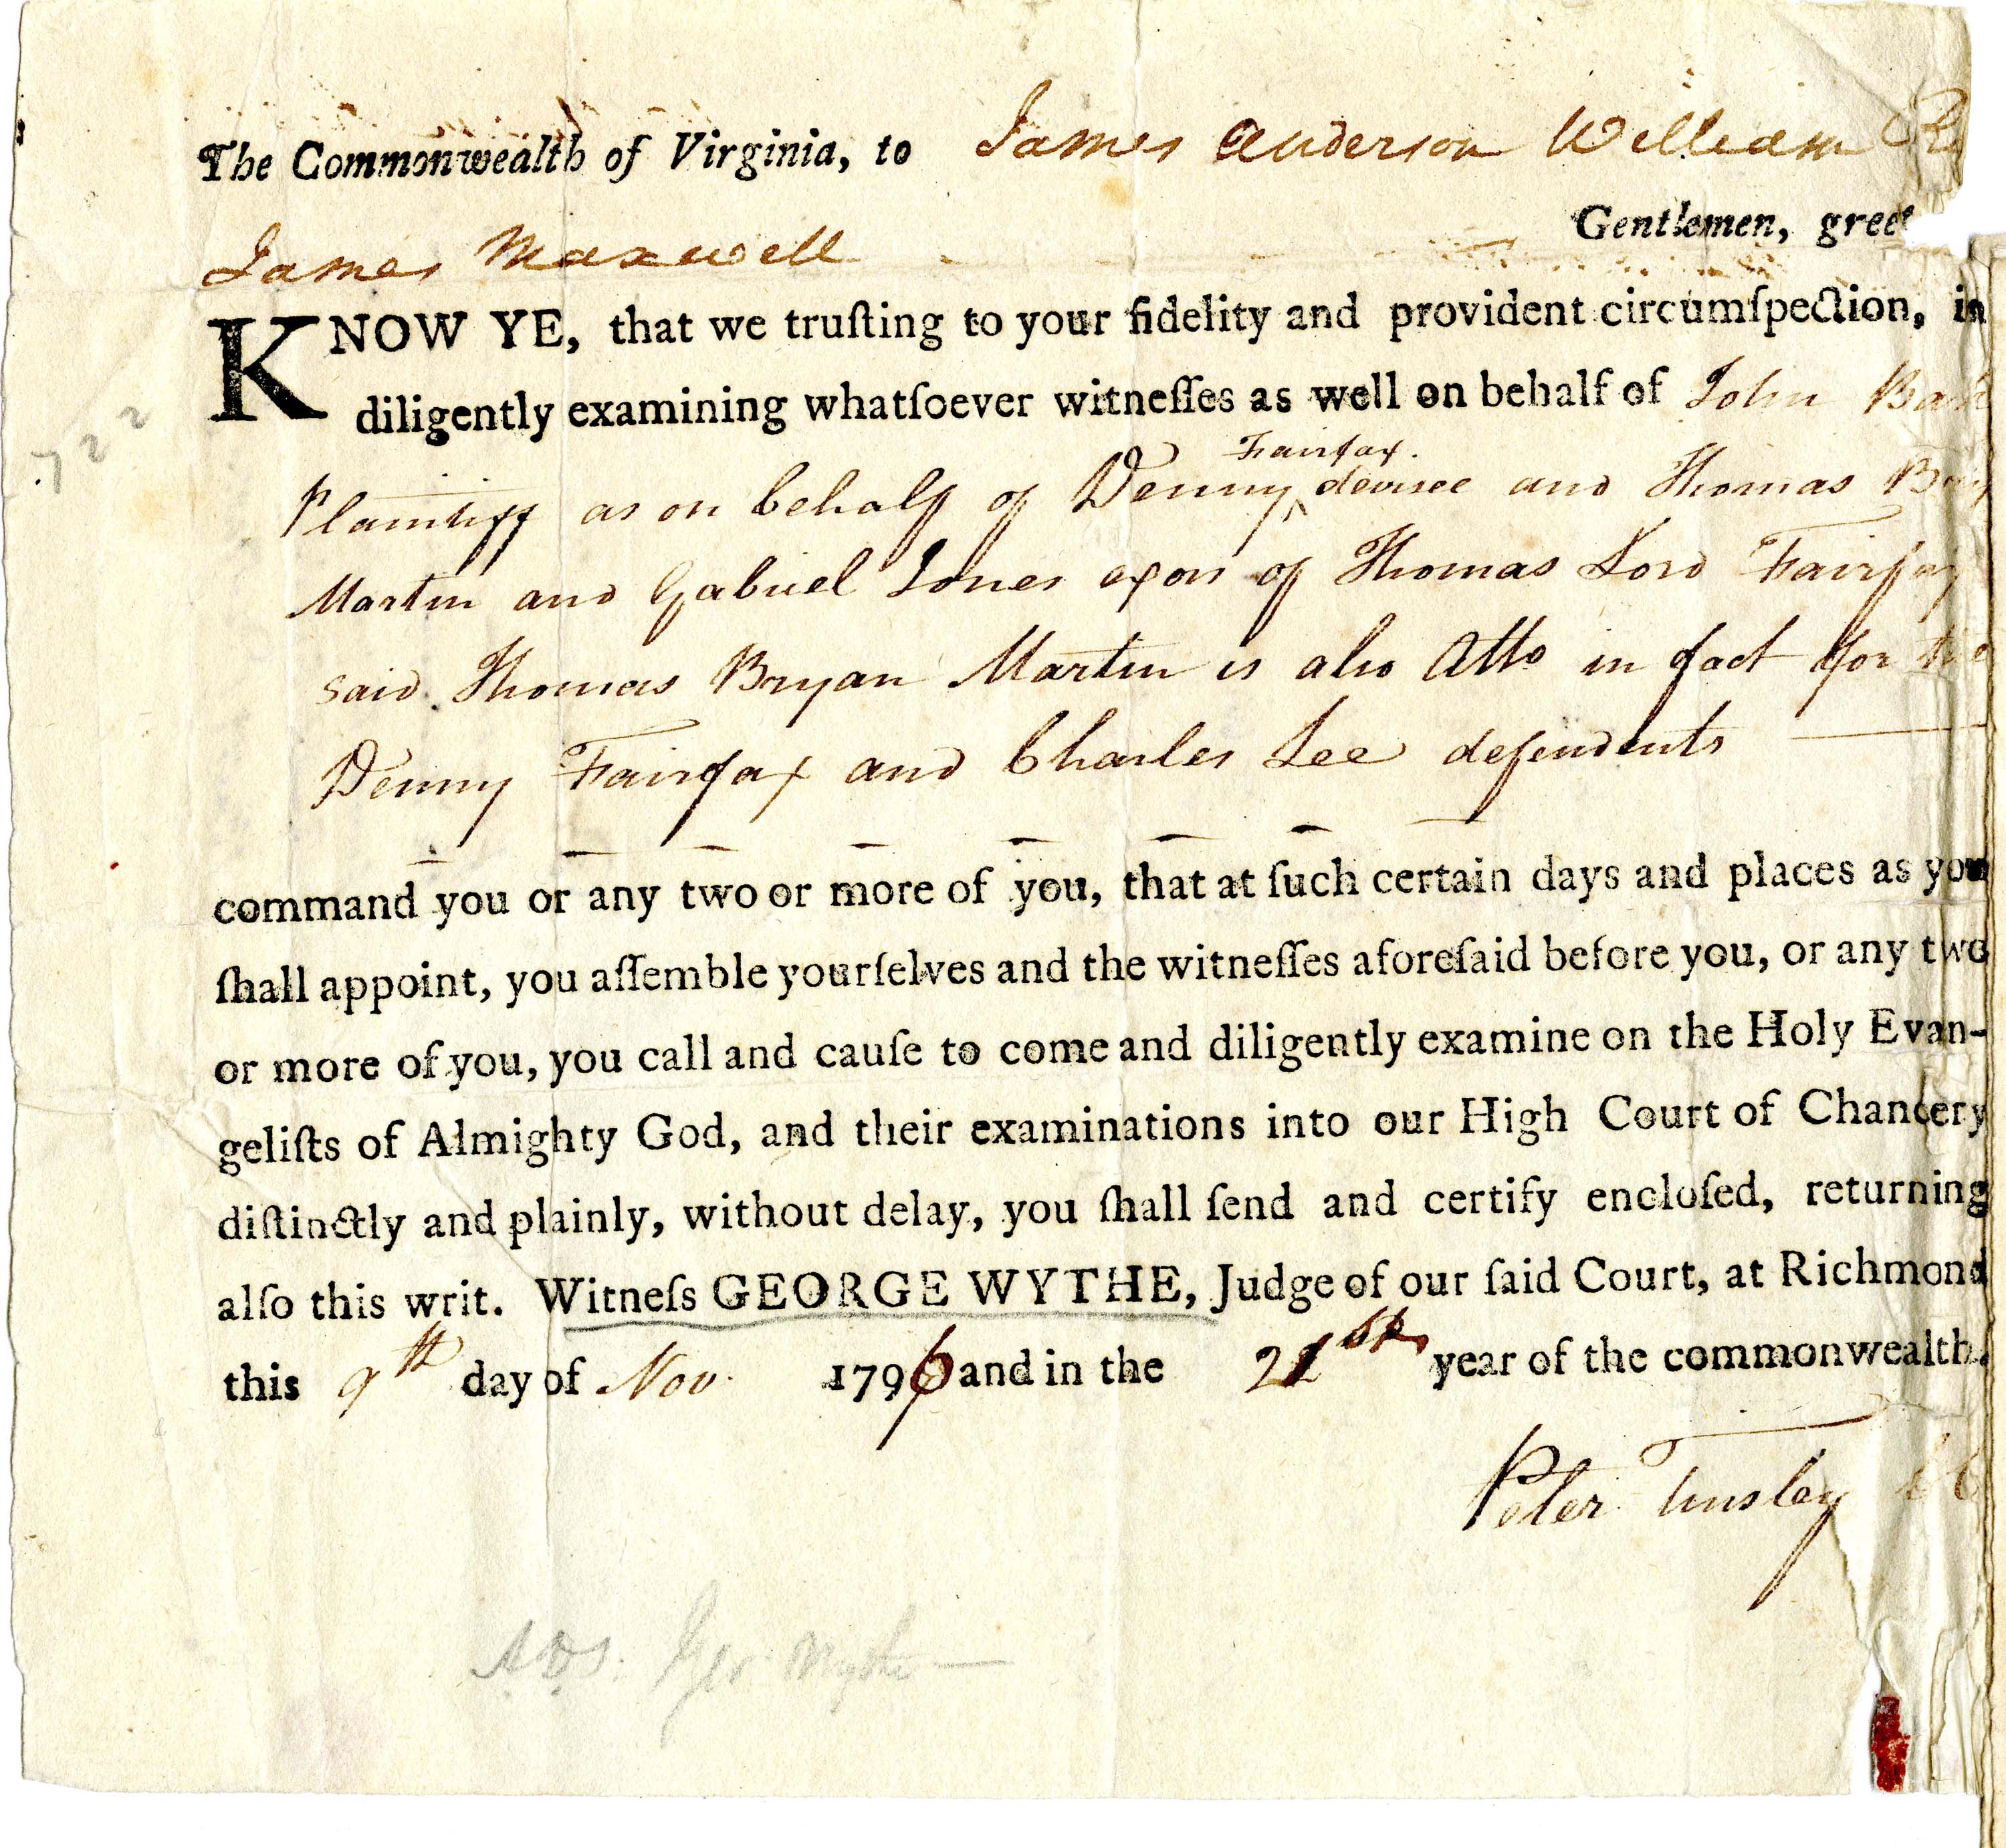 The Commonwealth of Virginia, to James Anderson William
Gentlemen, greet
James Maxwell
KNOW YE, that we truſting to your fidelity and provident circumſpection, in
diligently examining whatſoever witneſſes as well on behalf of John
Fairfax.
Plaintiff as on behalf of Denny ^ devisee and Thomas
Martin and Gabriel Jones exors of Thomas Lord Fairfax
said Thomas Bryan Martin is also Atto in fact for the
Denny Fairfax and Charles Lee defendents
command you or any two or more of you, that at ſuch certain days and places as you
ſhall appoint, you aſſemble yourſelves and the witneſſes aforeſaid before you, or any two
or more of you, you call and cauſe to come and diligently examine on the Holy Evan-
geliſts of Almighty God, and their examinations into our High Court of Chancery
diſtinctly and plainly, without delay, you ſhall ſend and certify encloſed, returning
alſo this writ. Witneſs GEORGE WYTHE, Judge of our ſaid Court, at Richmond
this 9th day of Nov. 1796 and in the 21st year of the commonwealth.
Peter Tinsley
722
A.D.S. Geo. Wythe